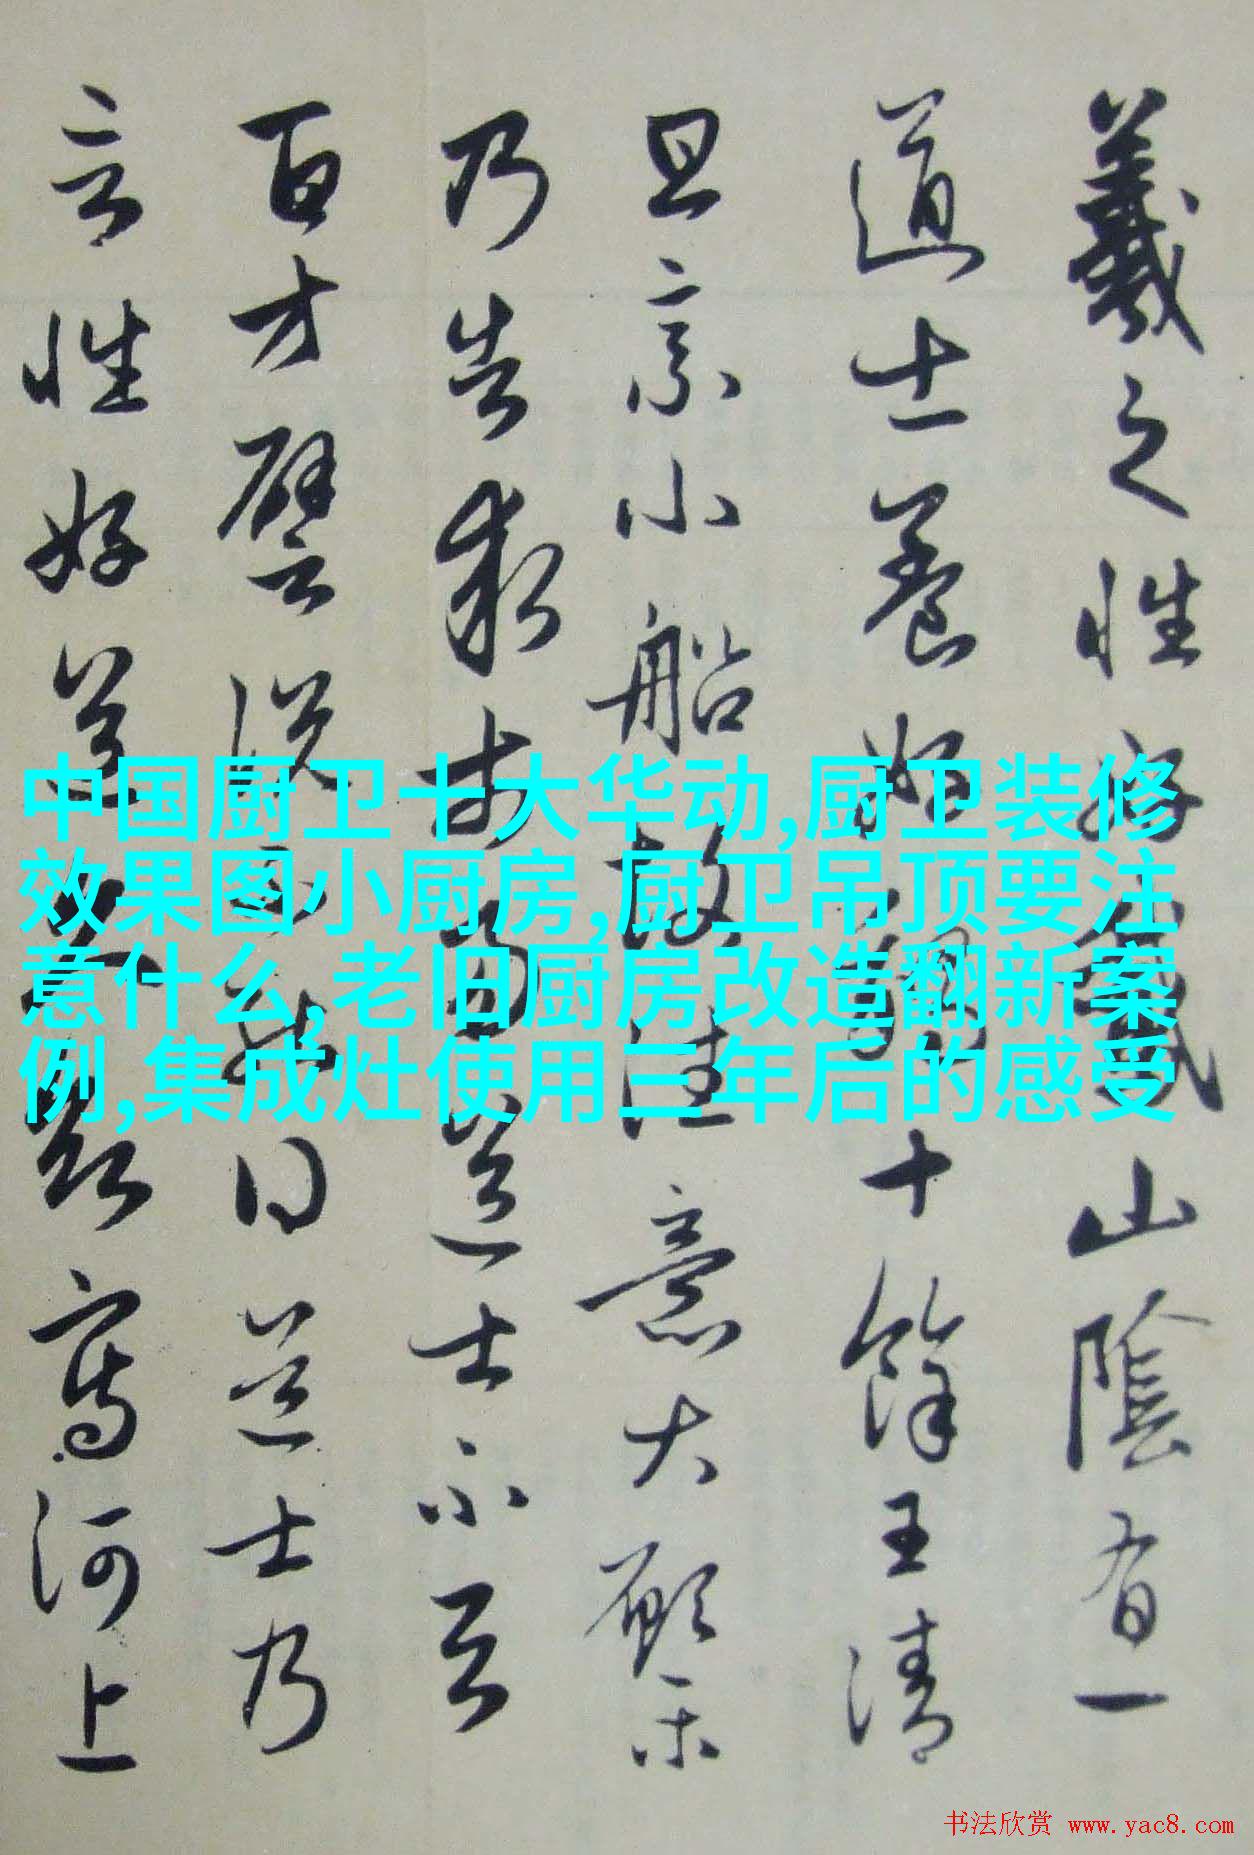 羲之性好鵝山陰有一
道士養好鵝十餘王清
旦乘小船故往意大願樂
乃告求市易道士不與
百方譬說不能得道士乃
言性好道久欲寫河上
中国厨卫十大华动,厨卫装修
效果图小厨房,厨卫吊顶要注
意什么,老旧厨房改造翻新案
例,集成灶使用三年后的感受
书法欣赏 www.yac8.com